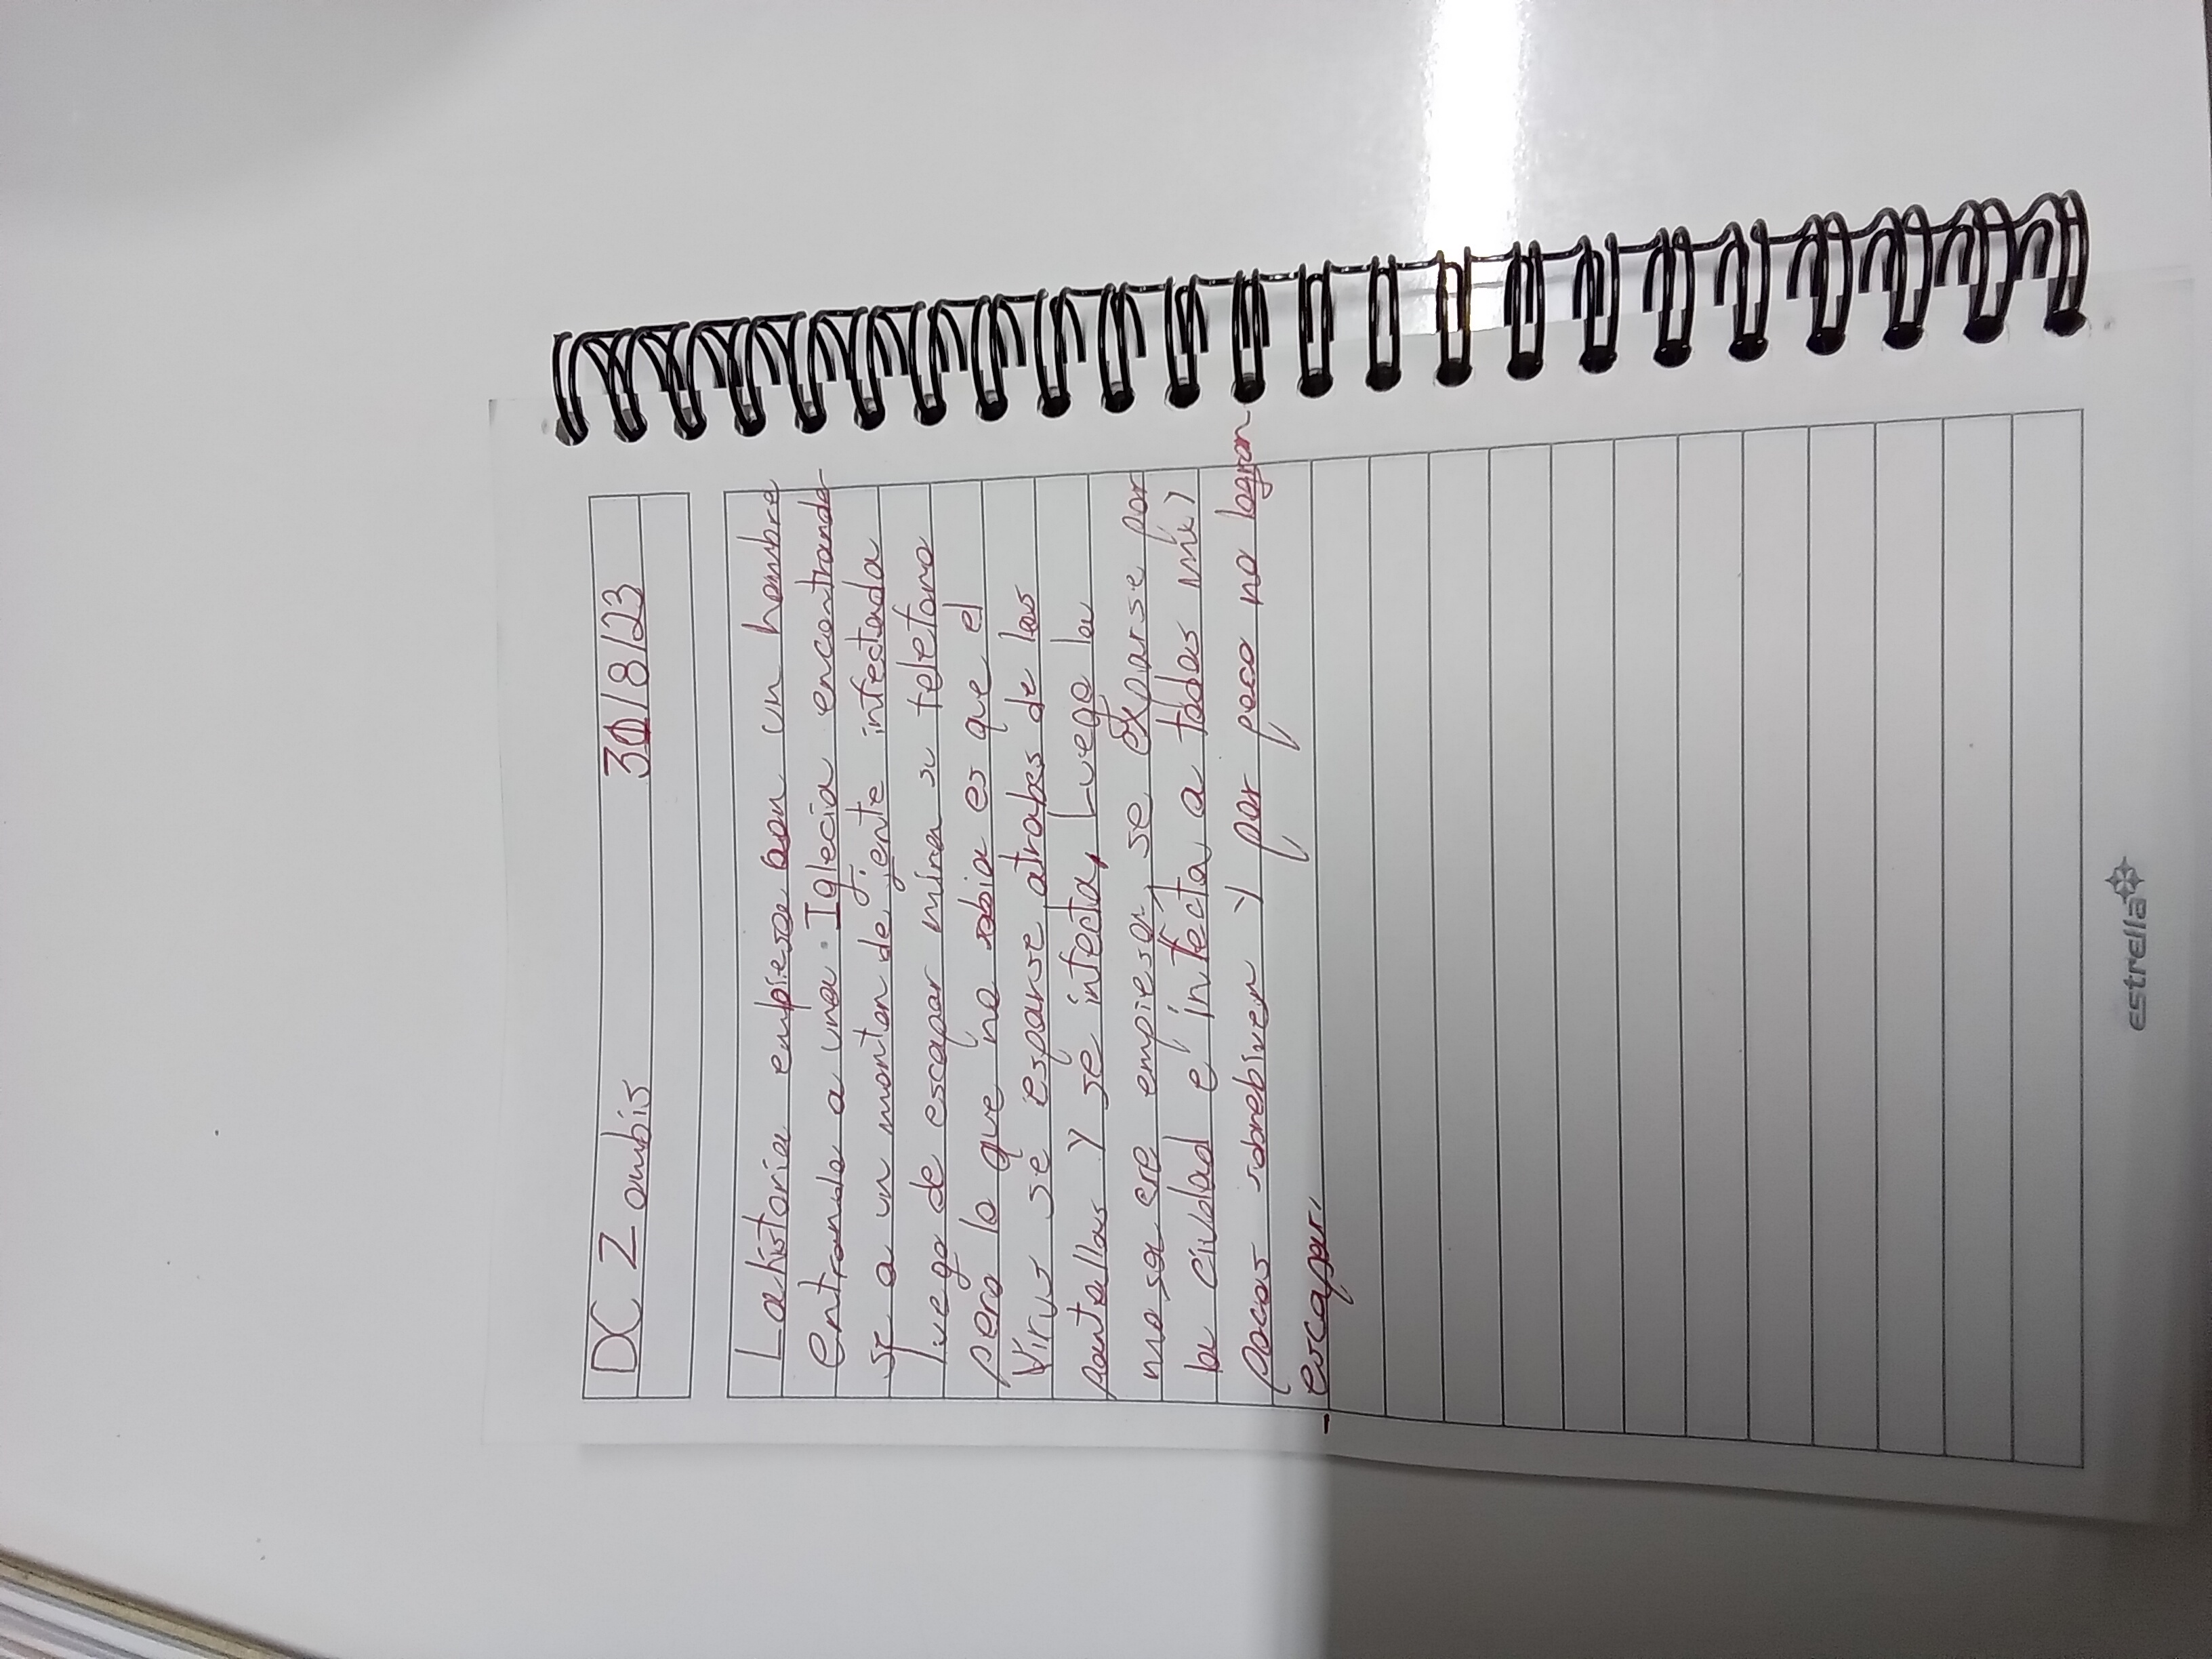 DC Zombis 31/8/23
La historia empiesa con un hombre
entrando a una Iglecia encontrando
se a un monton de jente infectada
luego de escapar mira su telefono
pero lo que no sabia es que el
Virus se esparse atrabes de las
pantallas y se infecta, Luego la
masacre empiesa, se esparse por
la ciudad e infecta a todos mu,
pocos sobrebiven y por poco no logran
-escapar.
estrella